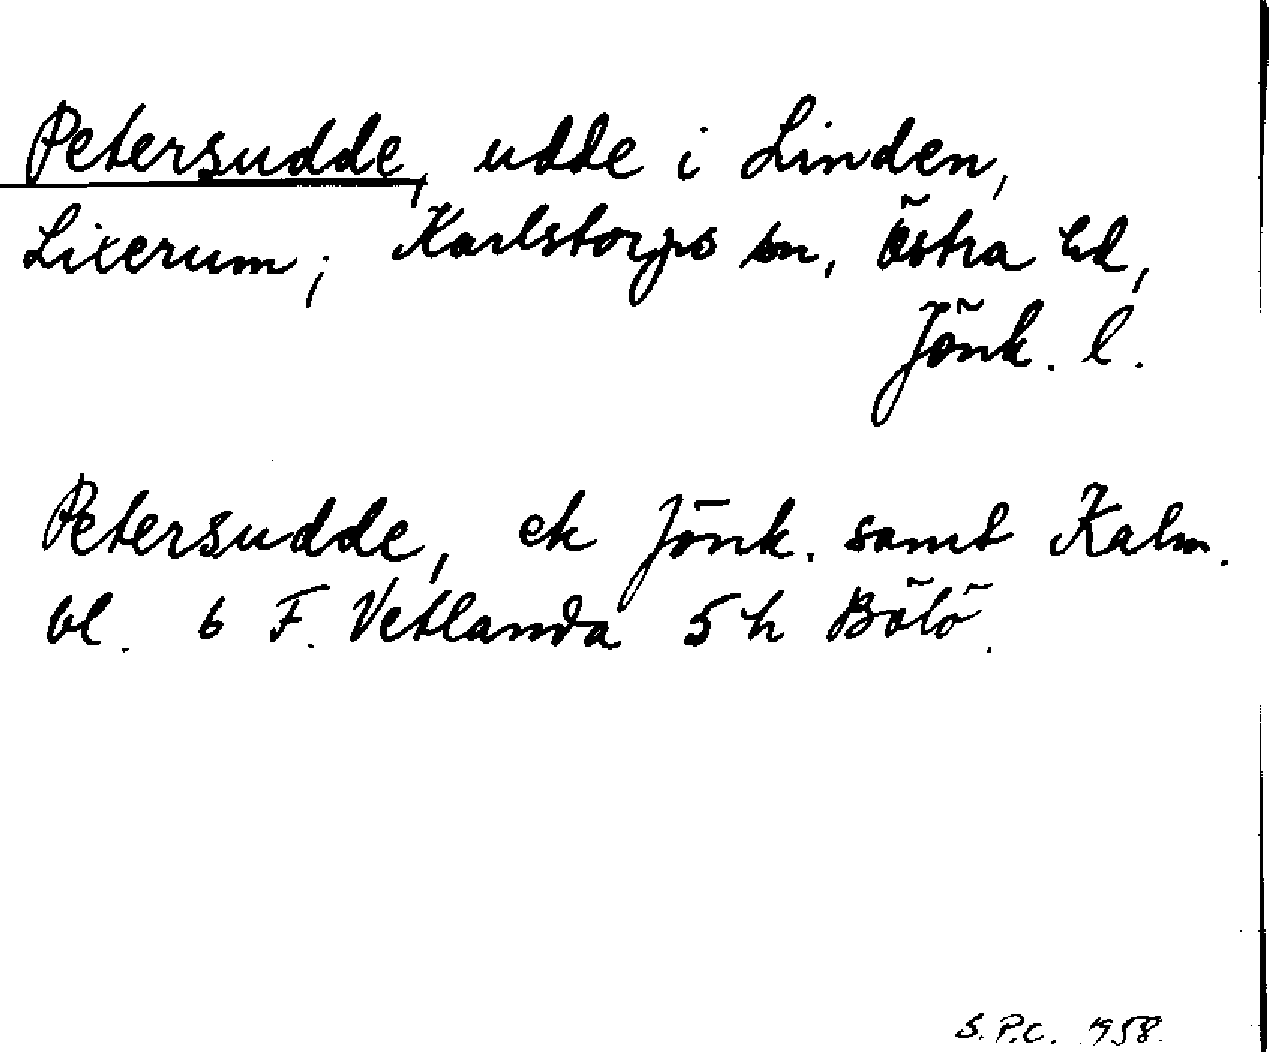 Petersudde, udde i Linden,
Lixerum; Karlstorps sn, Östra hd,
Jönk. l.
Petersudde, ek Jönk. samt Kalm.
bl. 6 F. Vetlanda 5 h Bölö.
S.P.C. 1958